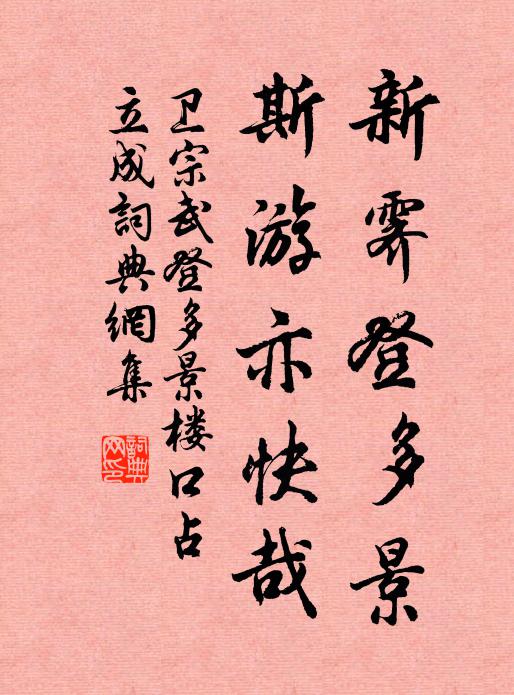 新霁登多景
斯游亦快哉
卫宗武登多景楼口占
立成詞典網集
詞典网印